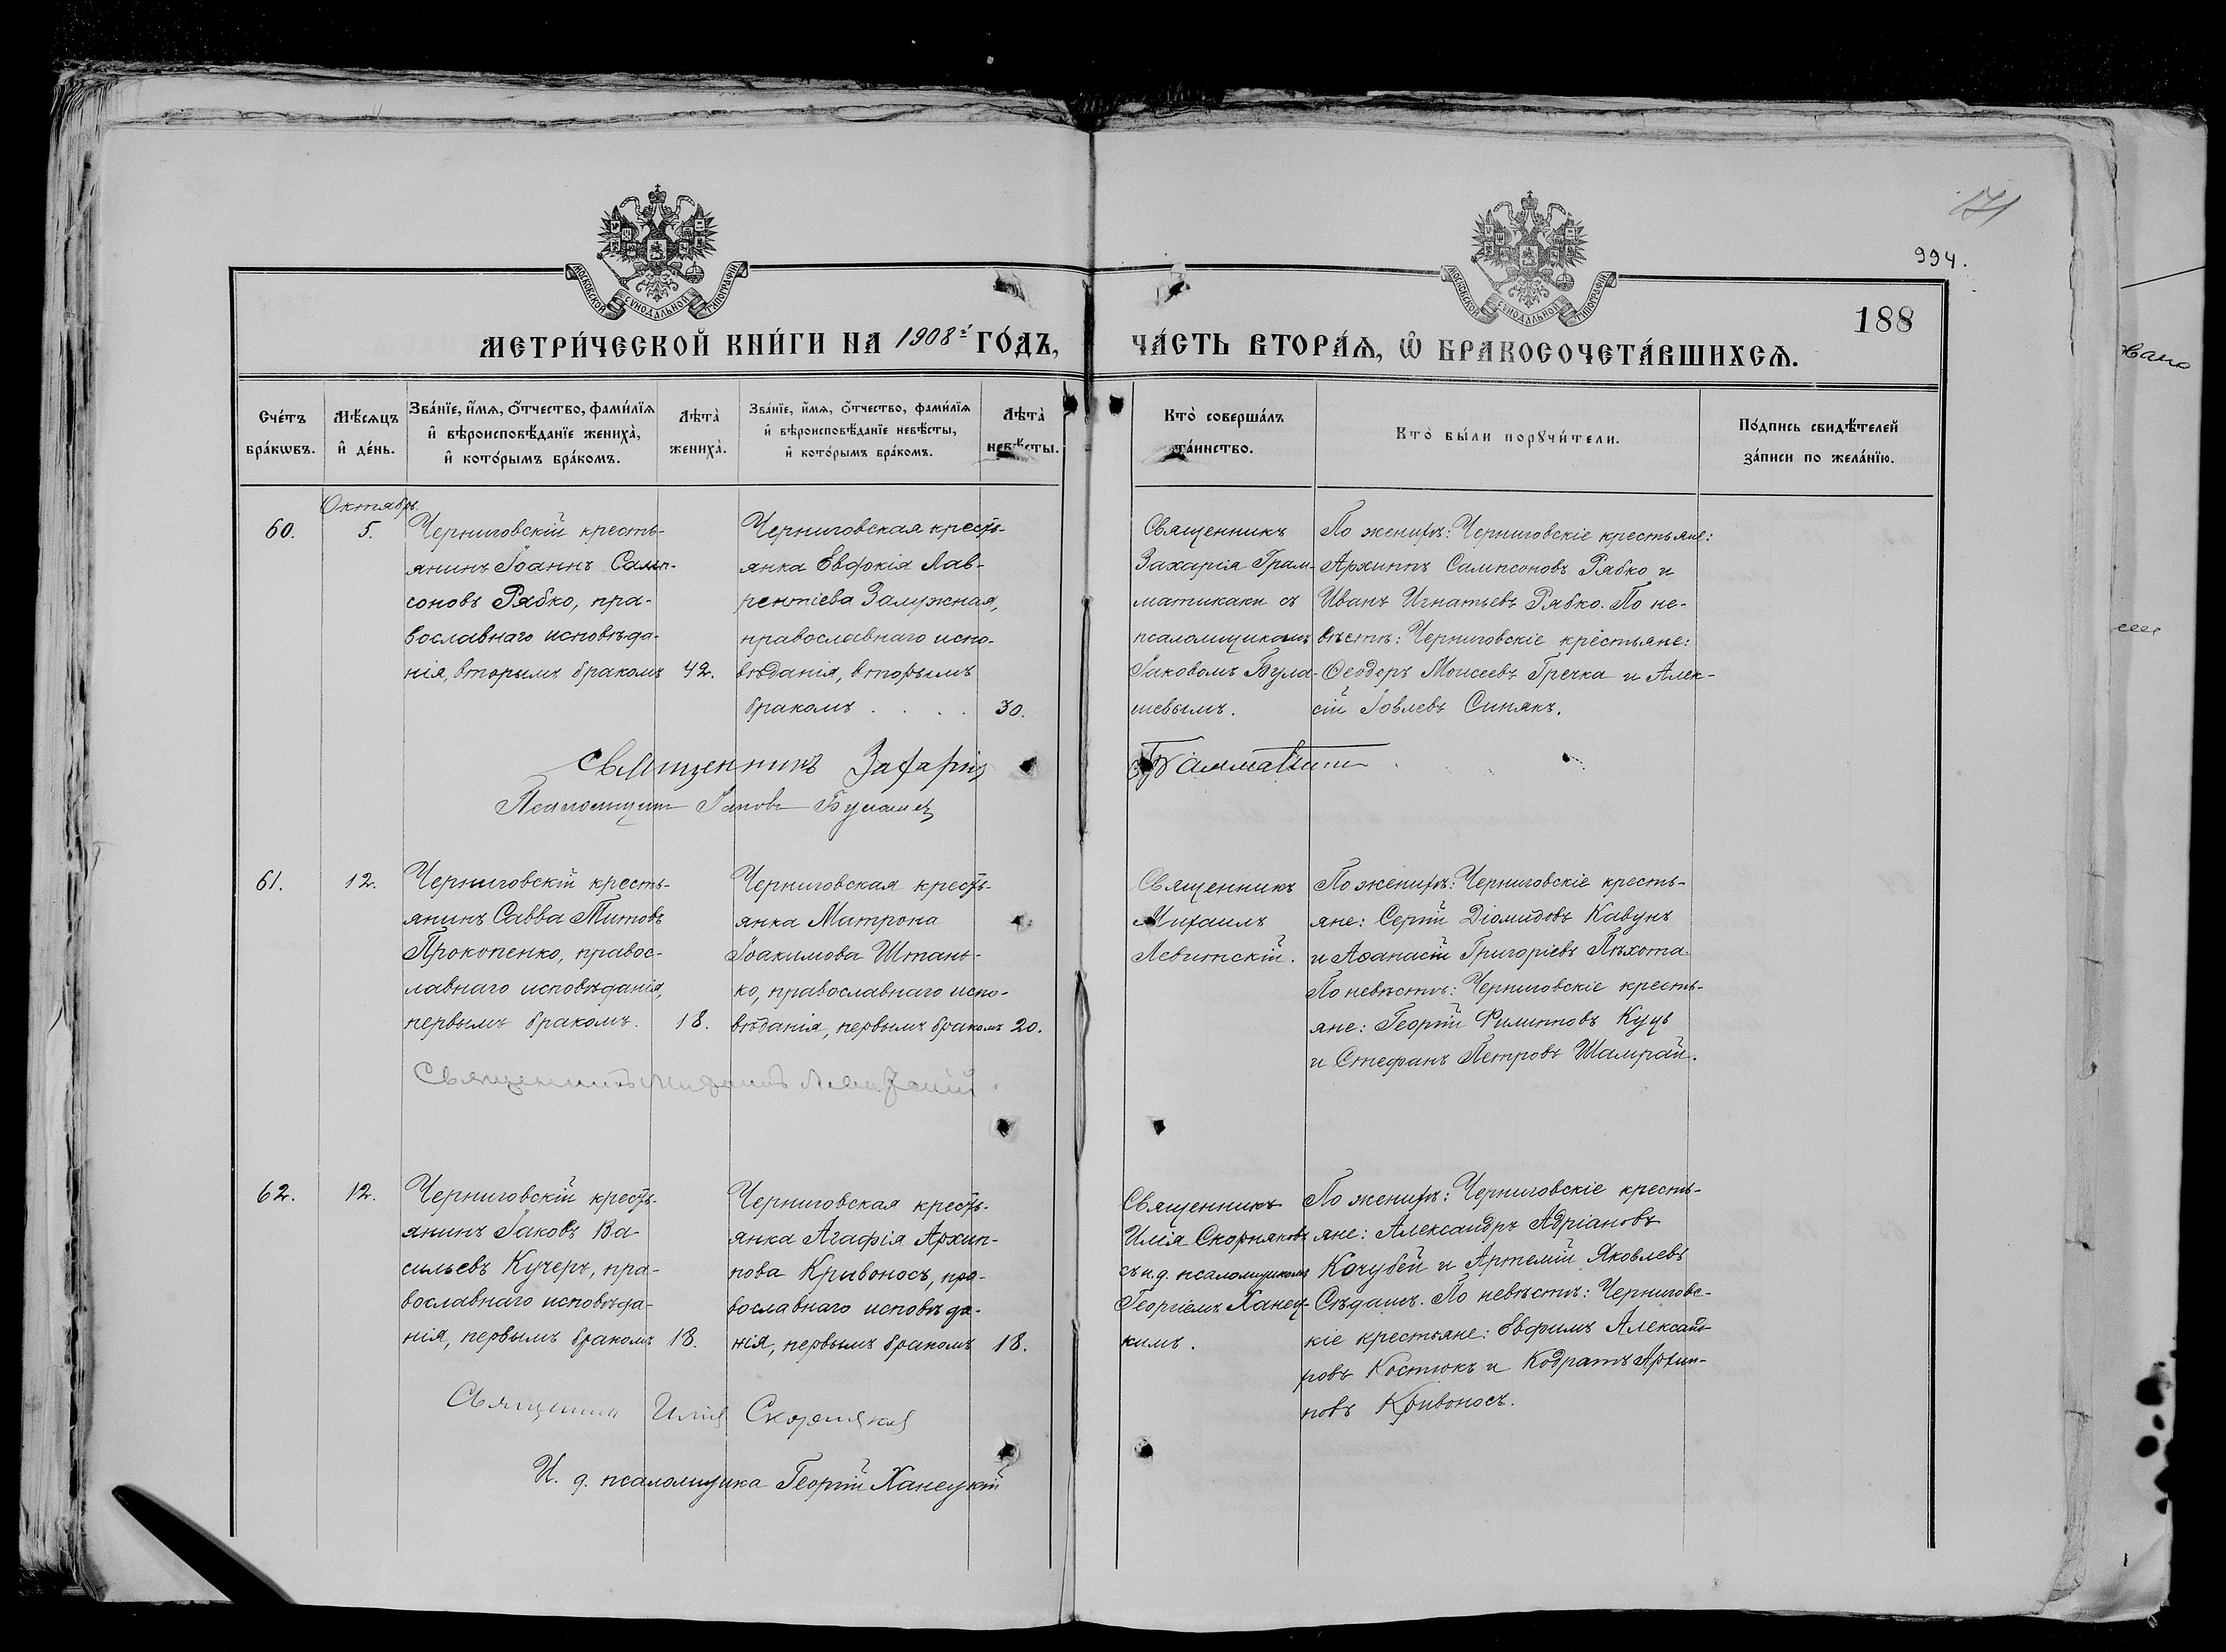 171
994.
188
МОСКОВСКОЙ СѴНОДАЛЬНОЙ ТИПОГРАФІИ
МОСКОВСКОЙ СѴНОДАЛЬНОЙ ТИПОГРАФІИ
МЕТРИ́ЧЕСКОЙ КНИ́ГИ НА 1908й ГО́ДЪ,
ЧА́СТЬ ВТОРА́Ѧ, Ѽ БРАКОСОЧЕТА́ВШИХСѦ.
Сче́тъ
бра́кѡвъ.
Мѣ́сѧцъ
и҆ де́нь.
Зва́нїе, и҆́мѧ, ѻ҆́тчество, фами́лїѧ
и҆ вѣроисповѣ́данїе жениха̀,
и҆ кото́рымъ бра́комъ.
Лѣта̀
жениха̀.
Зва́нїе, и҆́мѧ, ѻ҆́тчество, фами́лїѧ
и҆ вѣроисповѣ́данїе невѣ́сты,
и҆ кото́рымъ бра́комъ.
Лѣта̀
невѣ́сты.
Кто̀ соверша́лъ
та́инство.
Кто̀ бы́ли порꙋчи́тели.
По́дпись свидѣ́телей
за́писи по жела́нїю.
60.
Октябрь.
5.
Черниговскій кресть-
янинъ Іоаннъ Самп-
соновъ Рябко, пра-
вославнаго исповѣда-
нія, вторымъ бракомъ
42.
Черниговская кресть-
янка Евфокія Лав-
рентіева Залужная,
православнаго испо-
вѣданія, вторымъ
бракомъ . . . .
30.
Священникъ
Захарія Грам-
матикаки съ
псаломщикомъ
Іаковомъ Була-
шевымъ.
По женихѣ: Черниговскіе крестьяне:
Архиппъ Сампсоновъ Рябко и
Иванъ Игнатьевъ Рябко. По не-
вѣстѣ: Черниговскіе крестьяне:
Ѳеодоръ Моисеевъ Гречка и Алек-
сій Іовлевъ Синякъ.
Священникъ Захарія
Псаломщикъ Іаковъ Булашевъ
61.
12.
Черниговскій кресть-
янинъ Савва Титовъ
Прокопенко, правос-
лавнаго исповѣданія,
первымъ бракомъ.
18.
Черниговская кресть-
янка Матрона
Іоакимова Штань-
ко, православнаго испо-
вѣданія, первымъ бракомъ
20.
Священникъ
Михаилъ
Левитскій.
По женихѣ: Черниговскіе кресть-
яне: Сергій Діомидовъ Кавунъ
и Аѳанасій Григоріевъ Пѣхота.
По невѣстѣ: Черниговскіе кресть-
яне: Георгій Филипповъ Куць
и Стефанъ Петровъ Шамрай.
Священникъ Михаилъ Левитскій.
62.
12.
Черниговскій кресть-
янинъ Іаковъ Ва-
сильевъ Кучеръ, пра-
вославнаго исповѣда-
нія, первымъ бракомъ
18.
Черниговская кресть-
янка Агафія Архип-
пова Кривоносъ, пра-
вославнаго исповѣда-
нія, первымъ бракомъ
18.
Священникъ
Илія Скорняковъ
съ и.д. псаломщикомъ
Георгіемъ Ханец-
кимъ.
По женихѣ: Черниговскіе кресть-
яне: Александръ Адріановъ
Кочубей и Артемій Яковлевъ
Сѣдашъ. По невѣстѣ: Черниговс-
кіе крестьяне: Евфимъ Александ-
ровъ Костюкъ и Кодратъ Архип-
повъ Кривоносъ.
Священникъ Илія Скорняковъ
И. д. псаломщика Георгій Ханецкій